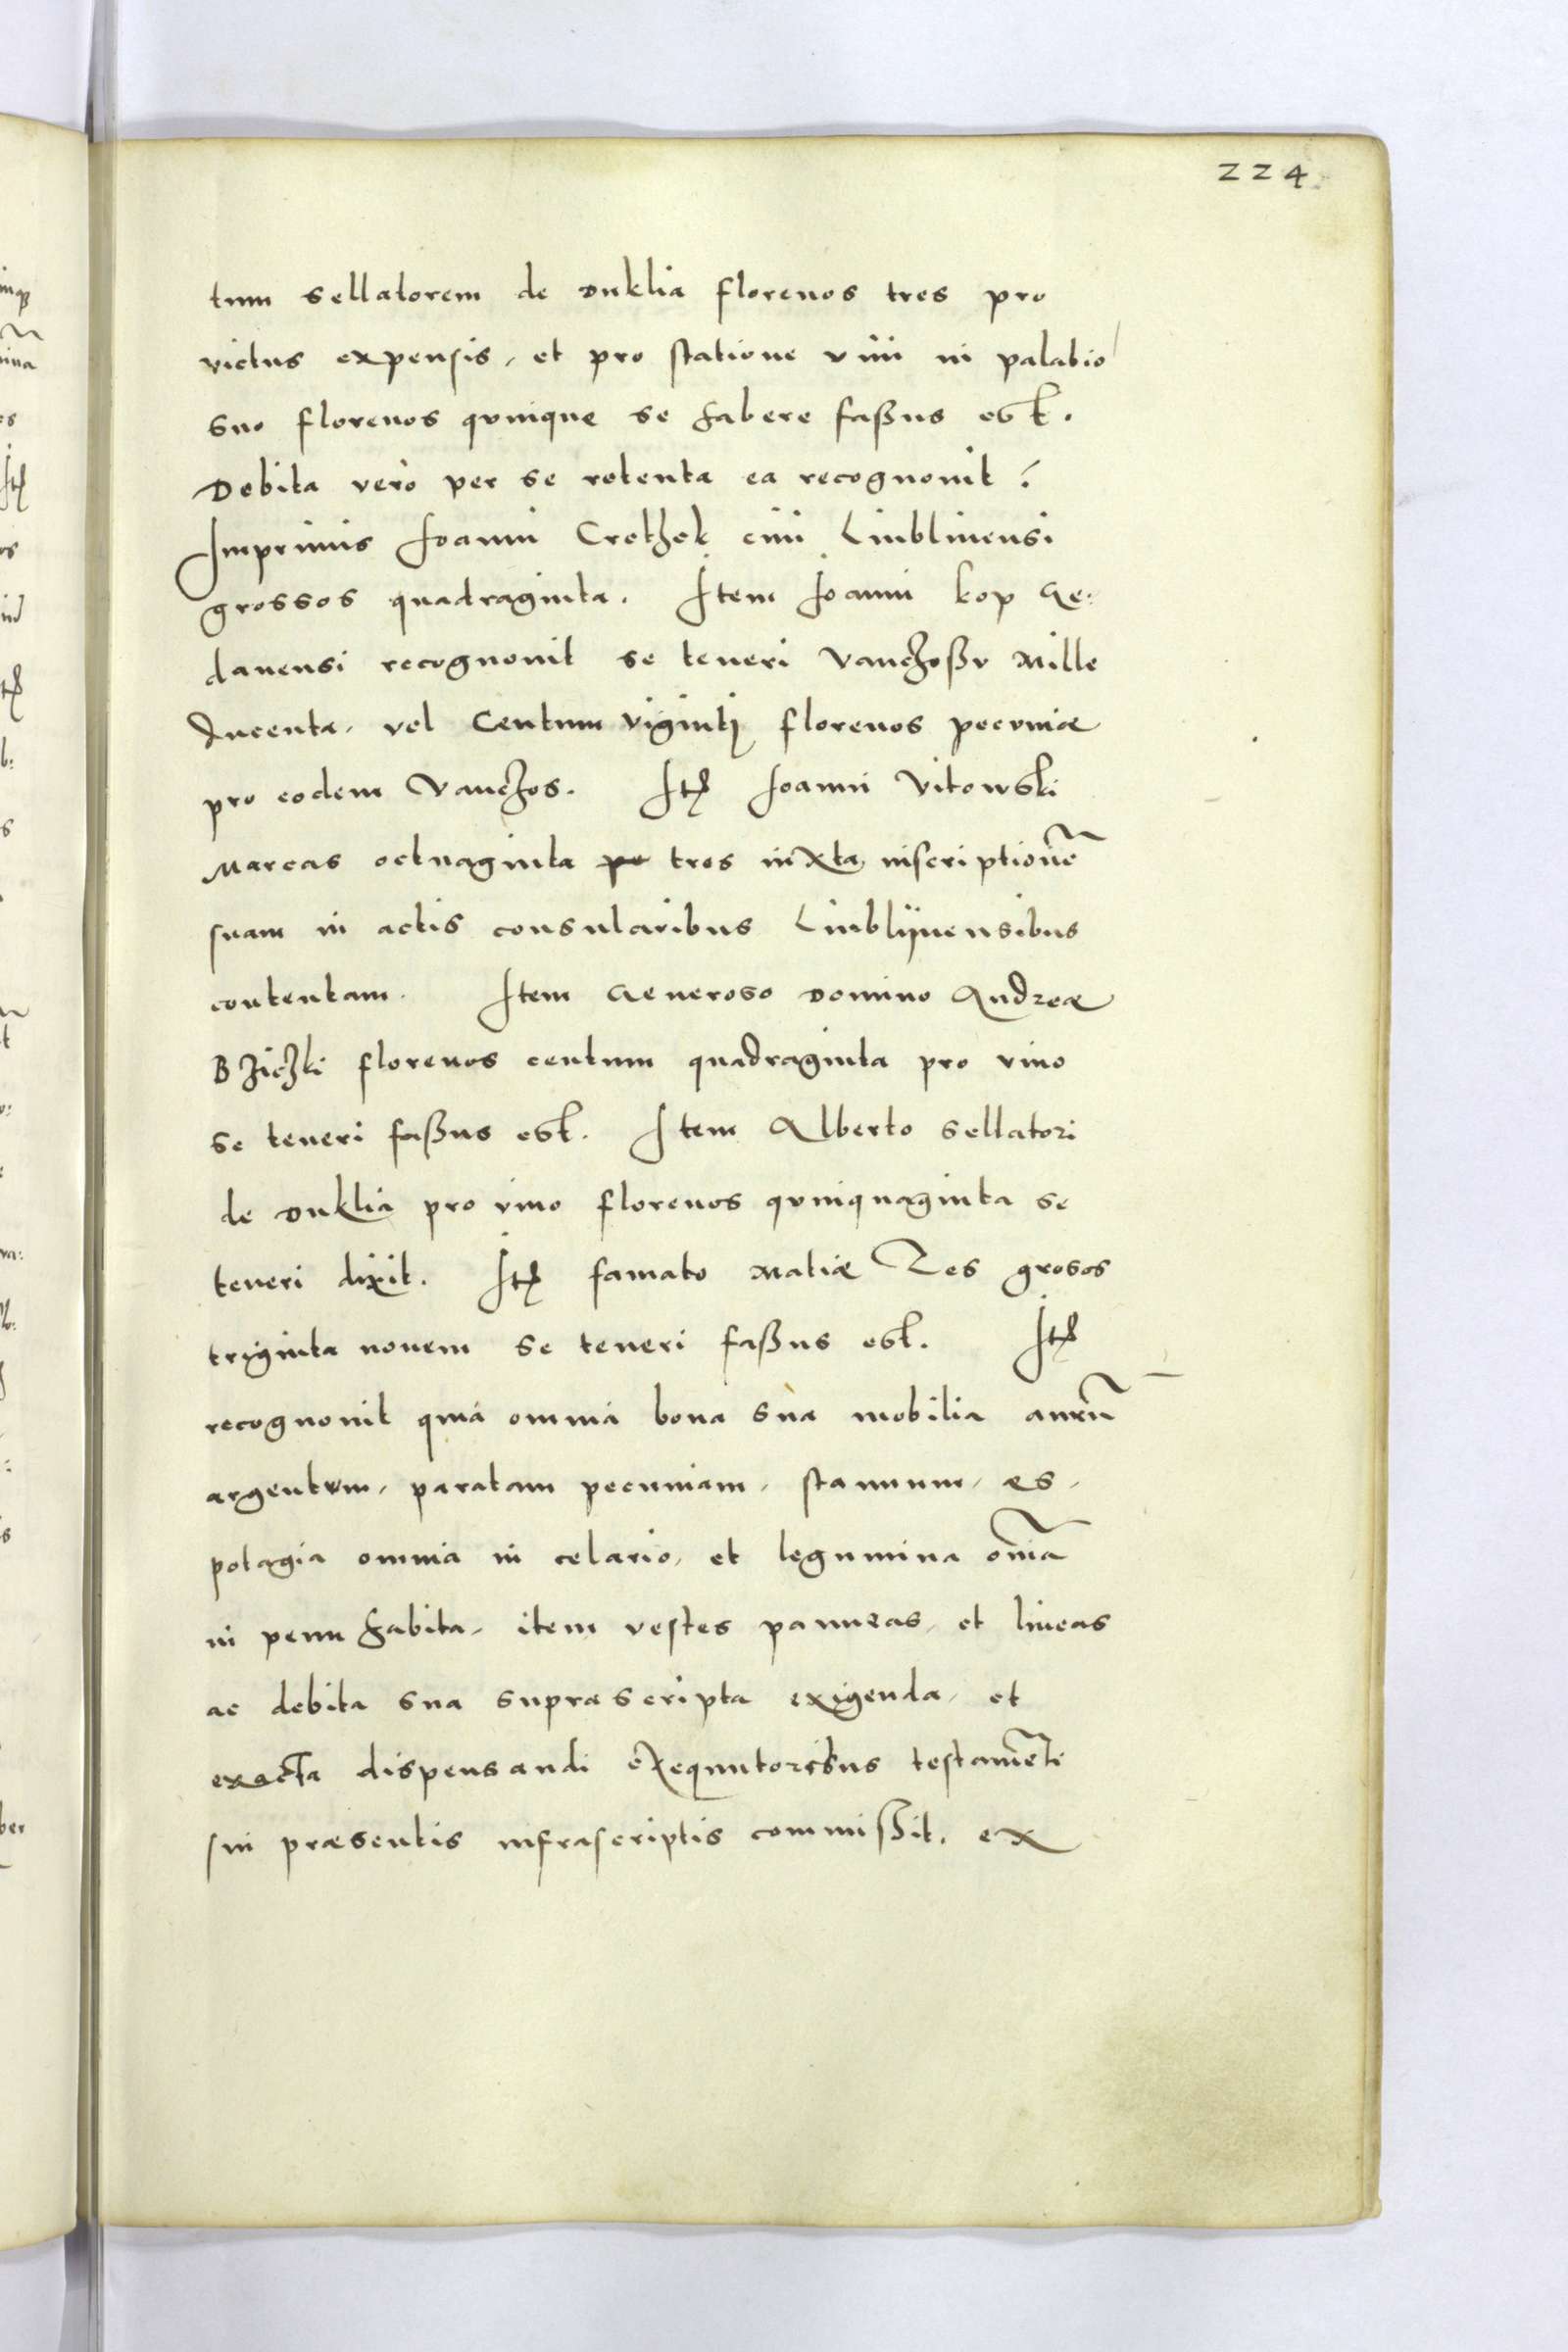 224
tum sellatorem de Duklia florenos tres pro
victus expensis, et pro statione vini in palatio
suo florenos quinque se habere faßus est.
Debita verò per se retenta ea recognouit:
Imprimis Joanni Crethek ciui Lublinensi
grossos quadraginta. Item Joanni kop Ge:
danensi recognouit se teneri Vanchoßv Mille
Ducenta, vel Centum viginti florenos pecuniæ
pro eodem Vanchos. Itē Joanni Vitowski
Marcas octuaginta tres iuxta inscriptionē
suam in actis consularibus Lublijnensibus
contentam. Item Generoso Domino Andreæ
Bziczki florenos centum quadraginta pro vino
se teneri faßus est. Item Alberto sellatori
de Duklia pro vino florenos quinquaginta se
teneri dixit. Itē famato Matiæ Les grosos
triginta nouem se teneri faßus est. Itē
recognouit quia omnia bona sua mobilia aurū
argentum, paratam pecuniam, stannum, æs,
potagia omnia in celario, et legumina oīa
in penu habita, item vestes panneas, et lineas
ac debita sua suprascripta exigenda, et
exacta dispensandi exequutoribus testamēti
sui præsentis infrascriptis commißit. ex
inqꝫ